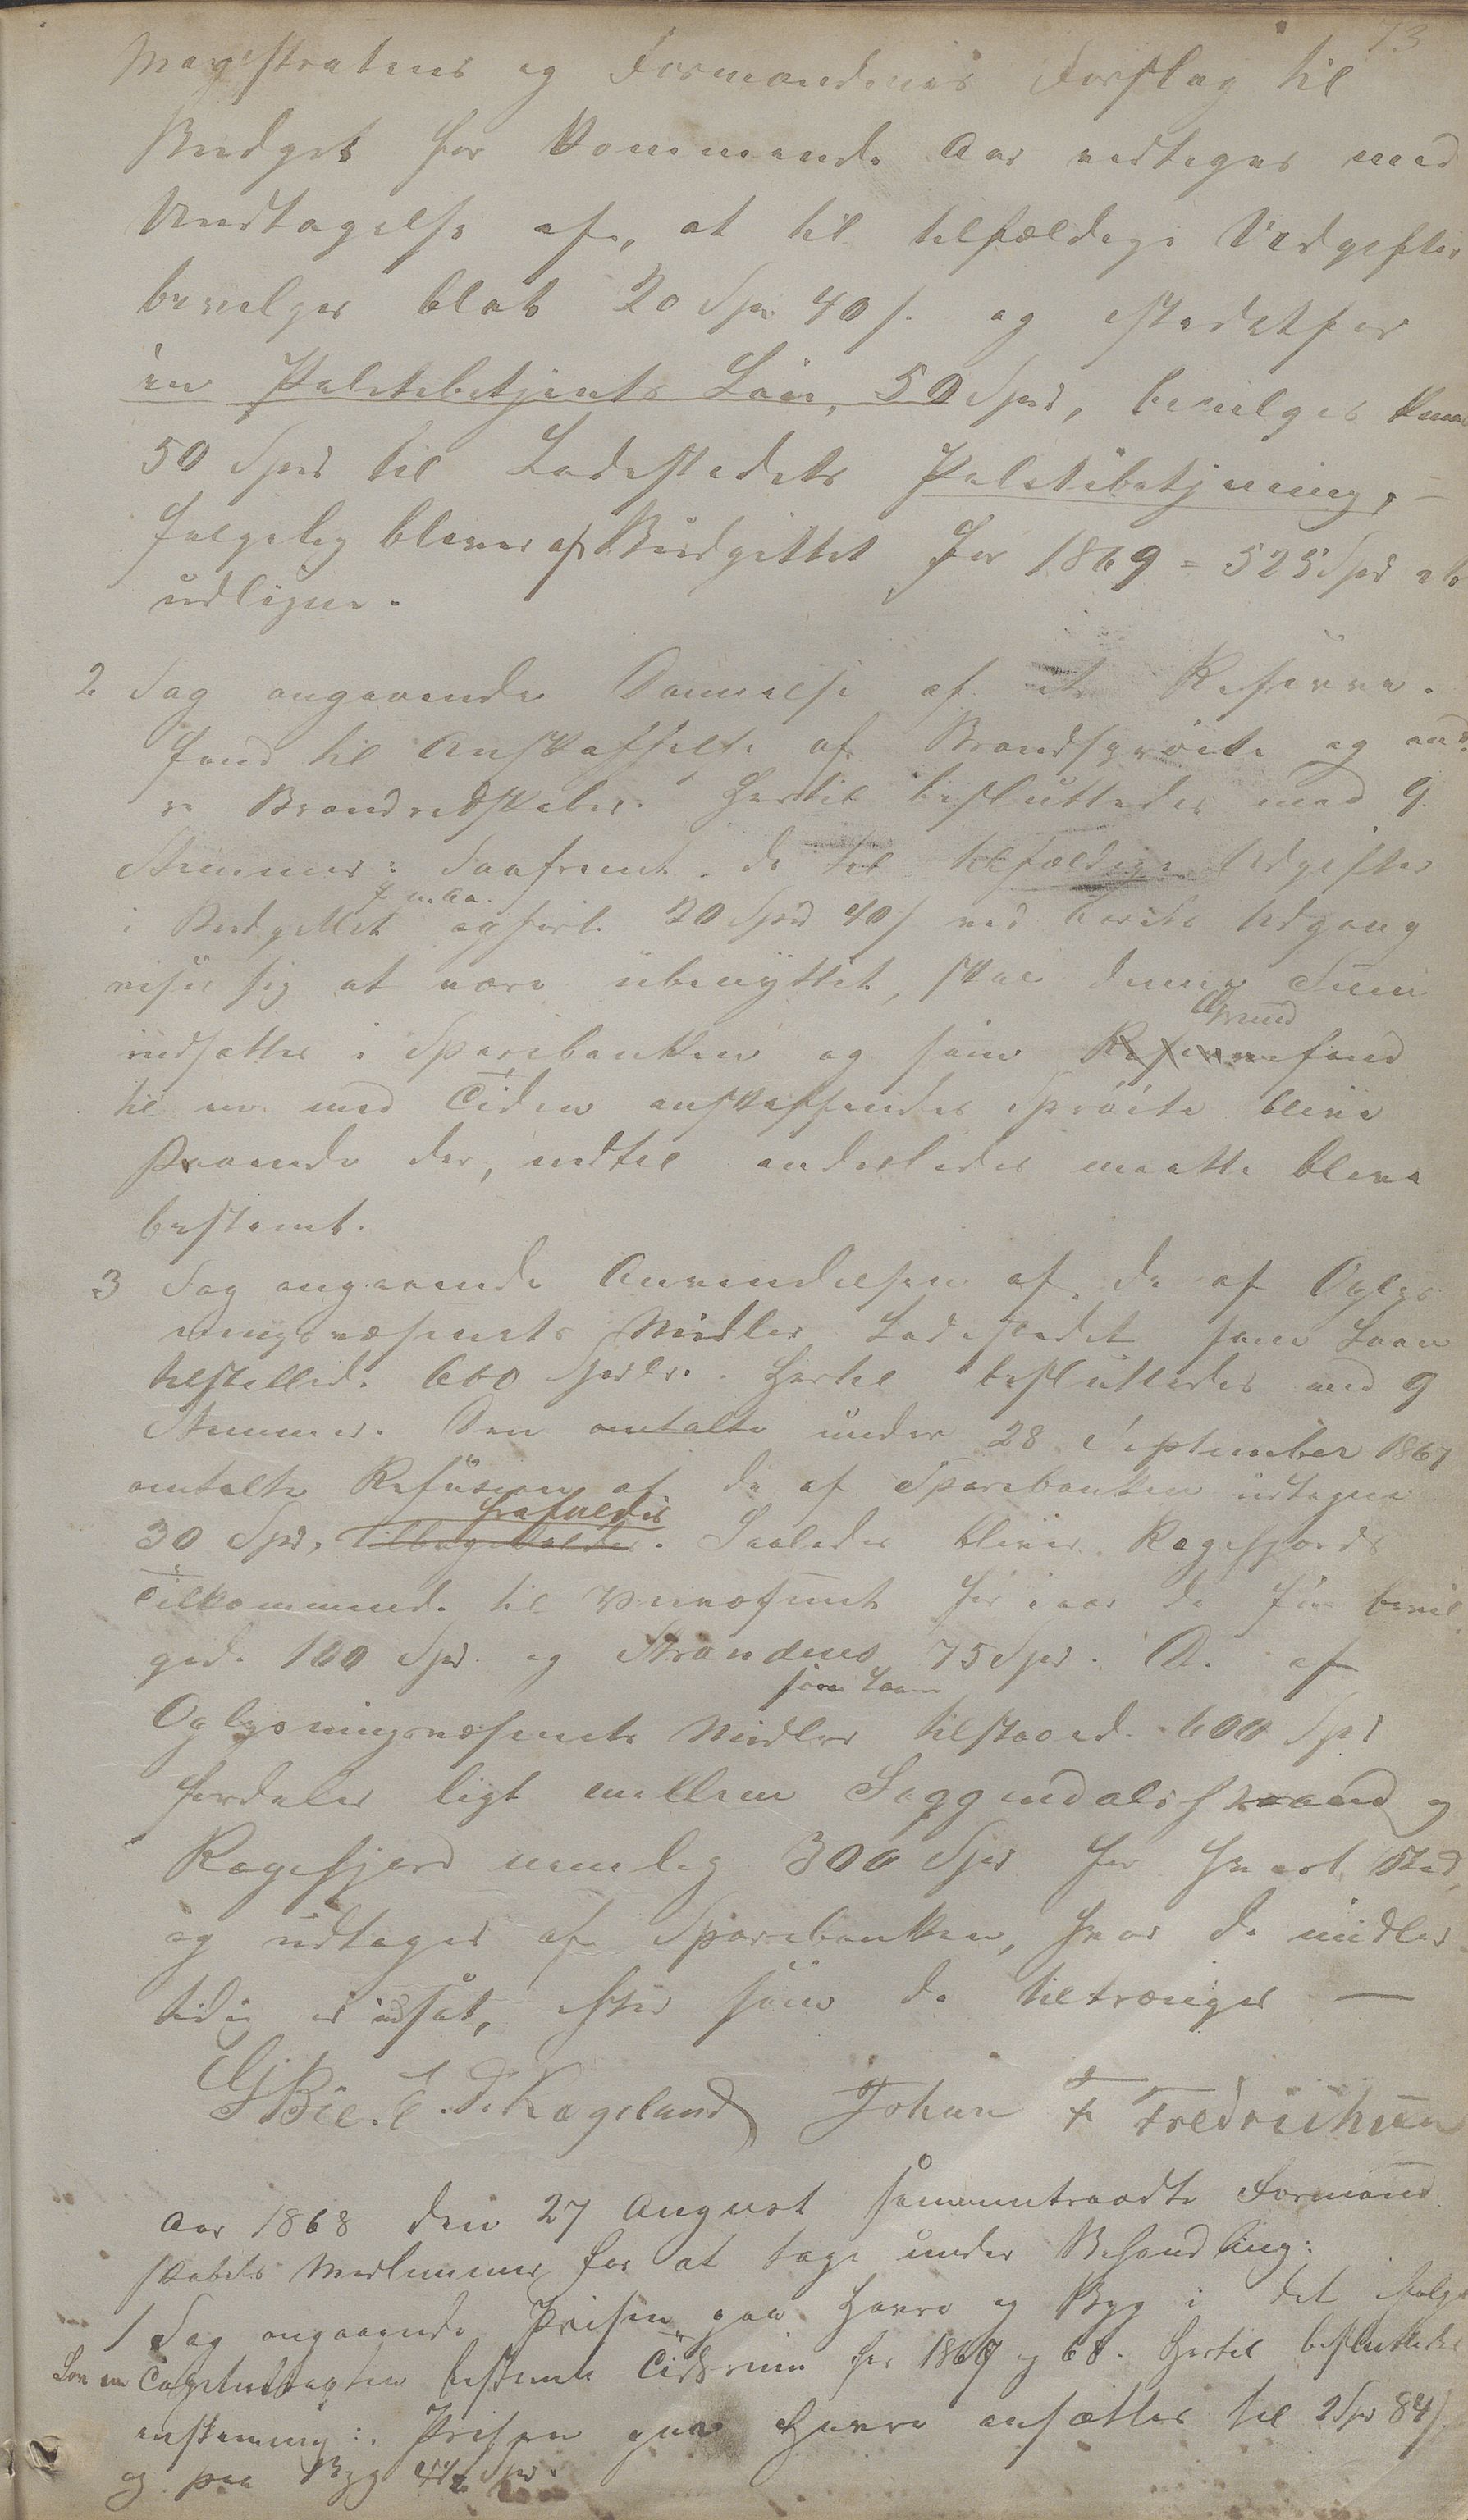 73
Magistratens og Formandens Forslag til
Budget for kommende Aar vedtoges med
Undtagelse af, at til tilfældige Udgifter
bevilges blot 20 Spd 40 s. og istedetfor
en Politibetjents Løn, 50 Spd, bevilges kuns
50 Spd til Ladestedets Politibetjening, –
følgelig bliver af Budgettet for 1869 = 525 Spd at
udligne.
2 Sag angaaende Dannelse af et Reserve-
fond til Anskaffelse af Brandsprøite og and-
re Brandredskaber. Hertil besluttedes med 9
Stemmer: Saafremt de til tilfældige Udgifter
i Budgettet opført 20 Spd 40 s ved Aarets Udgang
viser sig at være ubenyttet, skal denne Sum
Grund
indsættes i Sparebanken og som Reservefond
til en med Tiden anskaffendes Sprøite blive
staaende der, indtil anderledes maatte blive
bestemt.
3 Sag angaaende Anvendelsen af de af Oplys-
ningsvæsenets Midler Ladestedet som Laan
tilstillede 600 Spdlr. Hertil besluttedes med 9
Stemmer. Den omtalte under 28 September 1867
omtalte Refusion af de af Sparebanken udtagne
frafaldes
30 Spd, tilbageholdes. Saaledes bliver Ragefjords
Tilkommende til for iaar de før bevil-
gede 100 Spd og Strandens 75 Spd. De af
som Laan
Oplysningsvæsenets Midler tilstaaede 600 Spd
fordeles ligt mellem Soggendalsstrand og
Ragefjord nemlig 300 Spd for hvert Sted,
og udtages af Sparebanken, hvor de midler-
tidig er indsat, efter som de tiltrænges —
G Bie. E. D. Rageland Johan F Fredrichsen
Aar 1868 den 27 August sammentraadte Formand-
skabets Medlemmer for at tage under Behandling:
1 Sag angaaende Prisen paa Havre og Byg i det ifølge
Lov om bestemte Tidsrum for 1867 og 68. Hertil besluttedes
enstemmig: Prisen paa Havre ansættes til 2 Spd 84 s.
og paa Byg 4½ Spd.